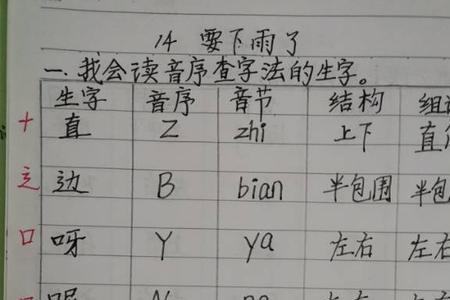 14 要下雨了
一. 我会读音序查字法的生字。
生字 音序 音节 结构
十 直 Z zhi 上下
辶 边 B bian 半包围
口 呀 Y ya 左右 左右